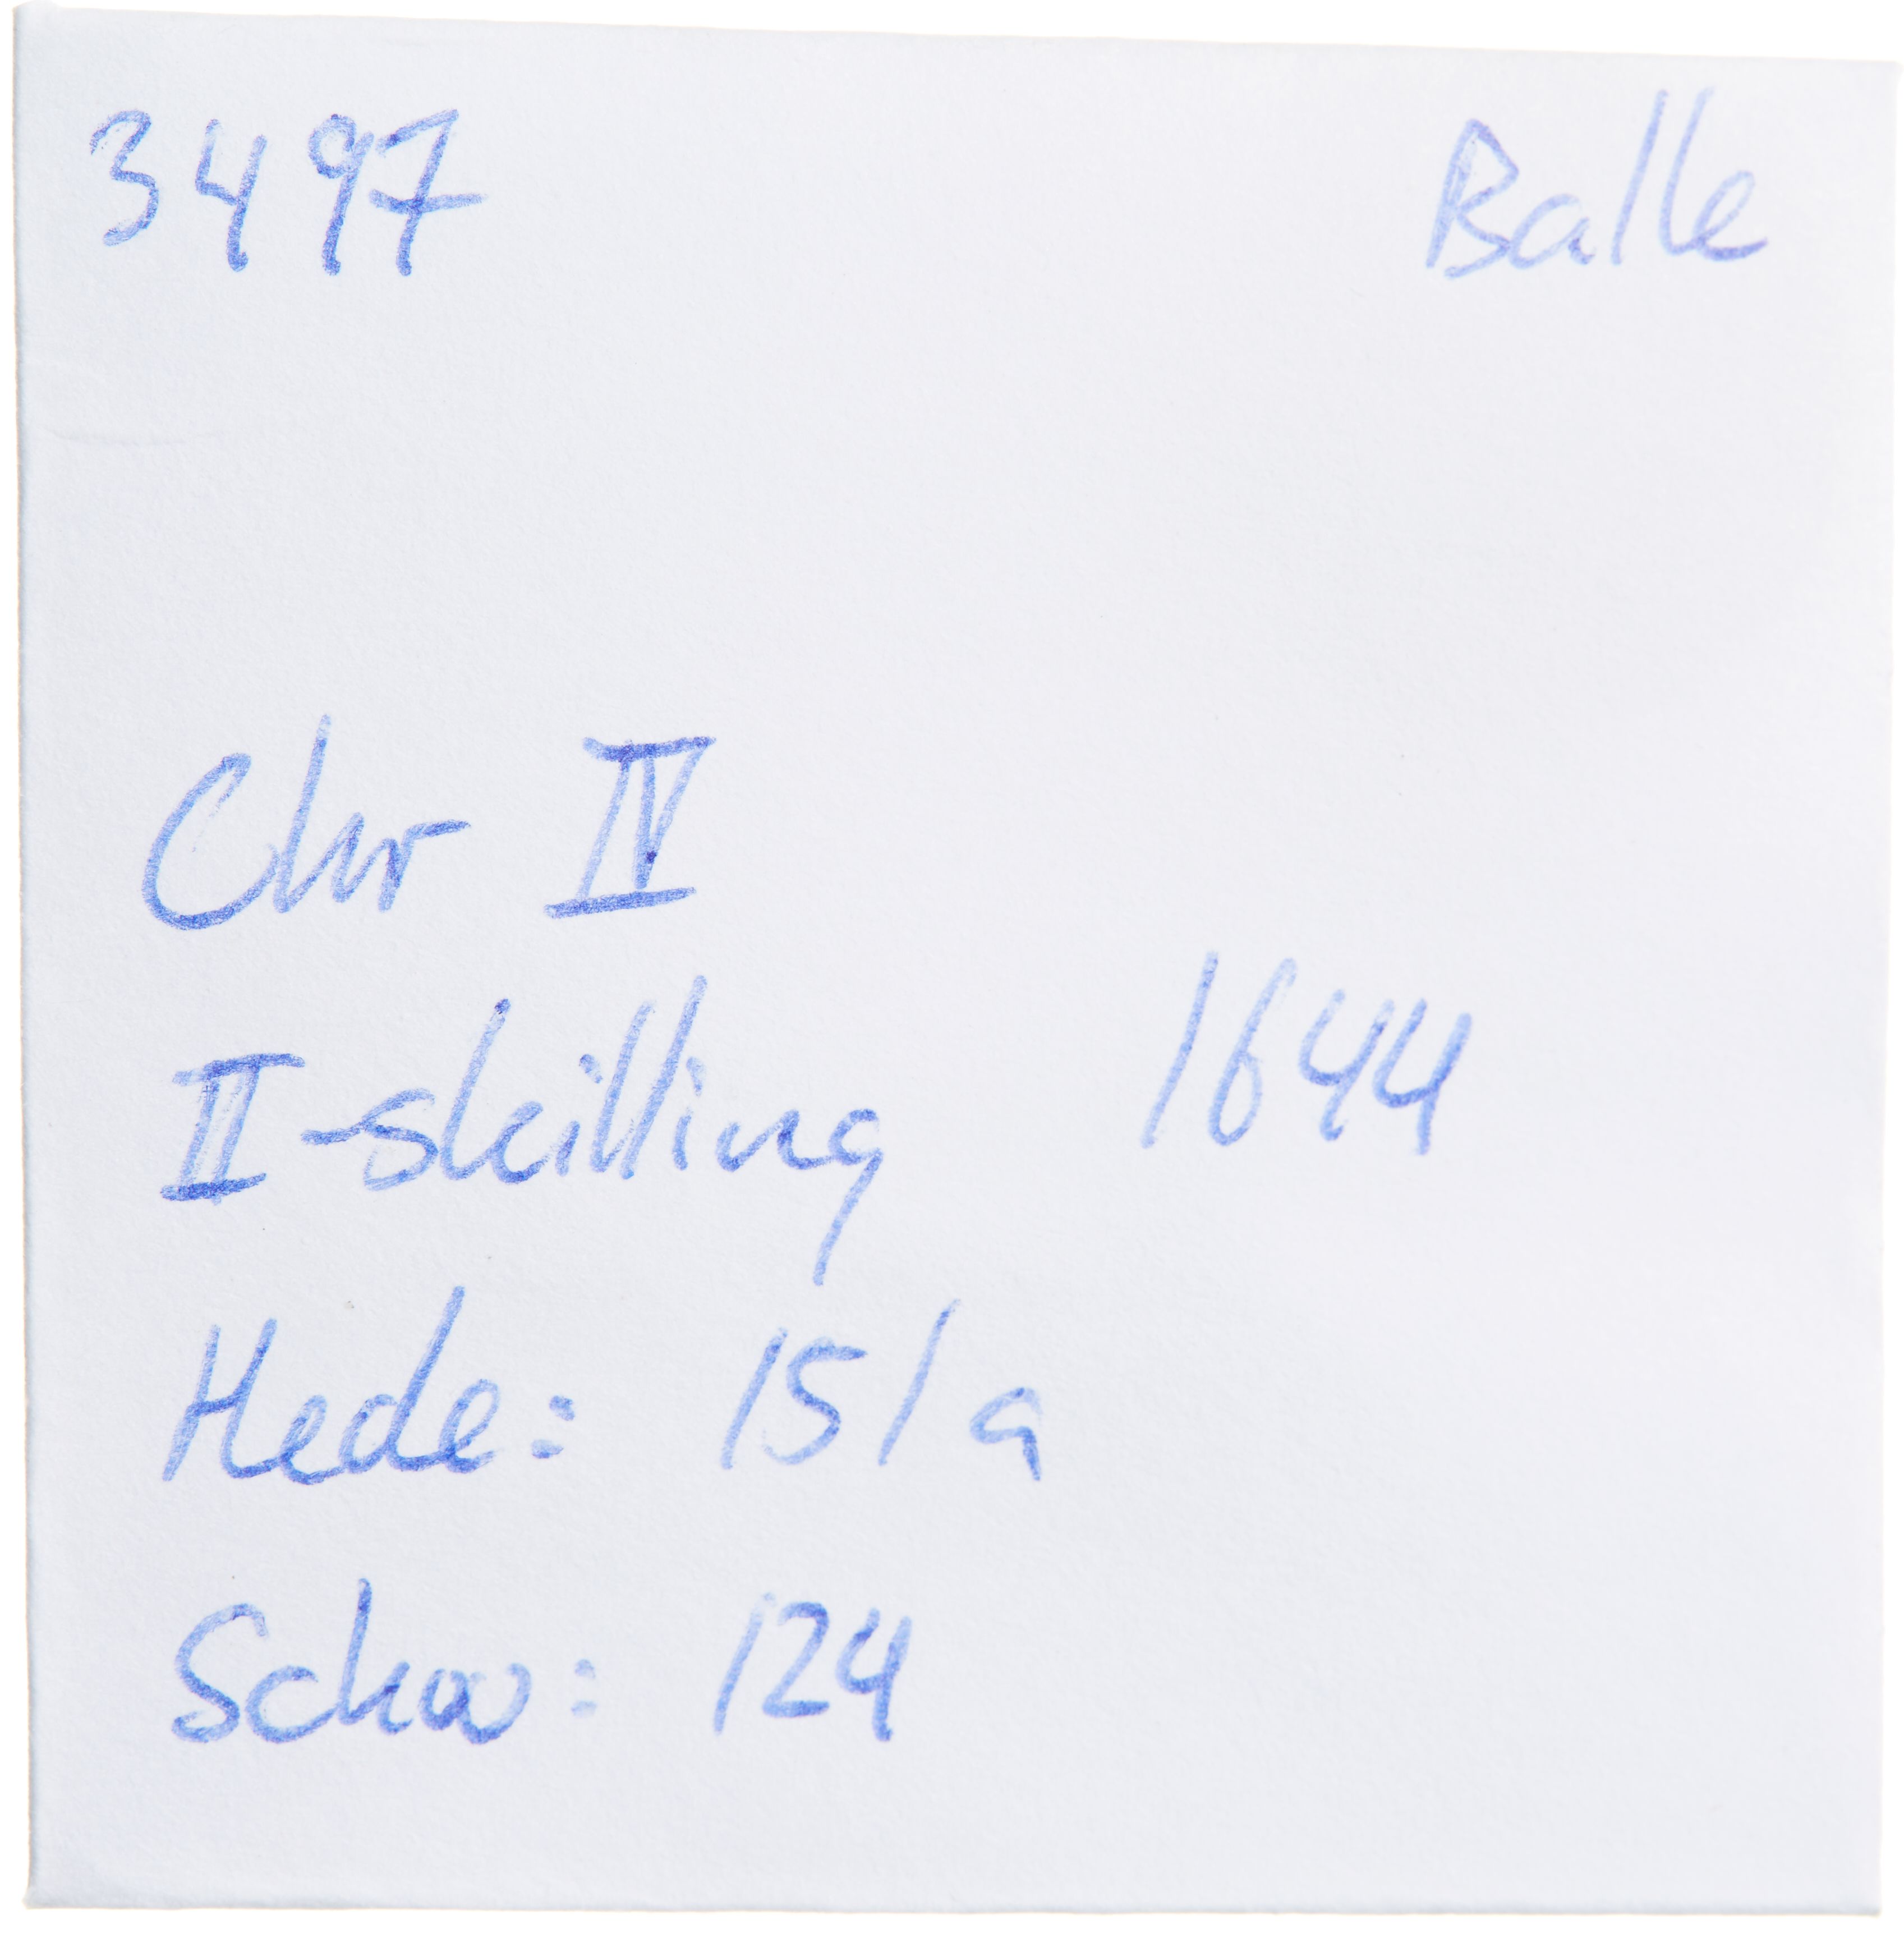 3497 Balle
Chr IV
II-skilling 1644
Hede: 15/a
Schou: 124